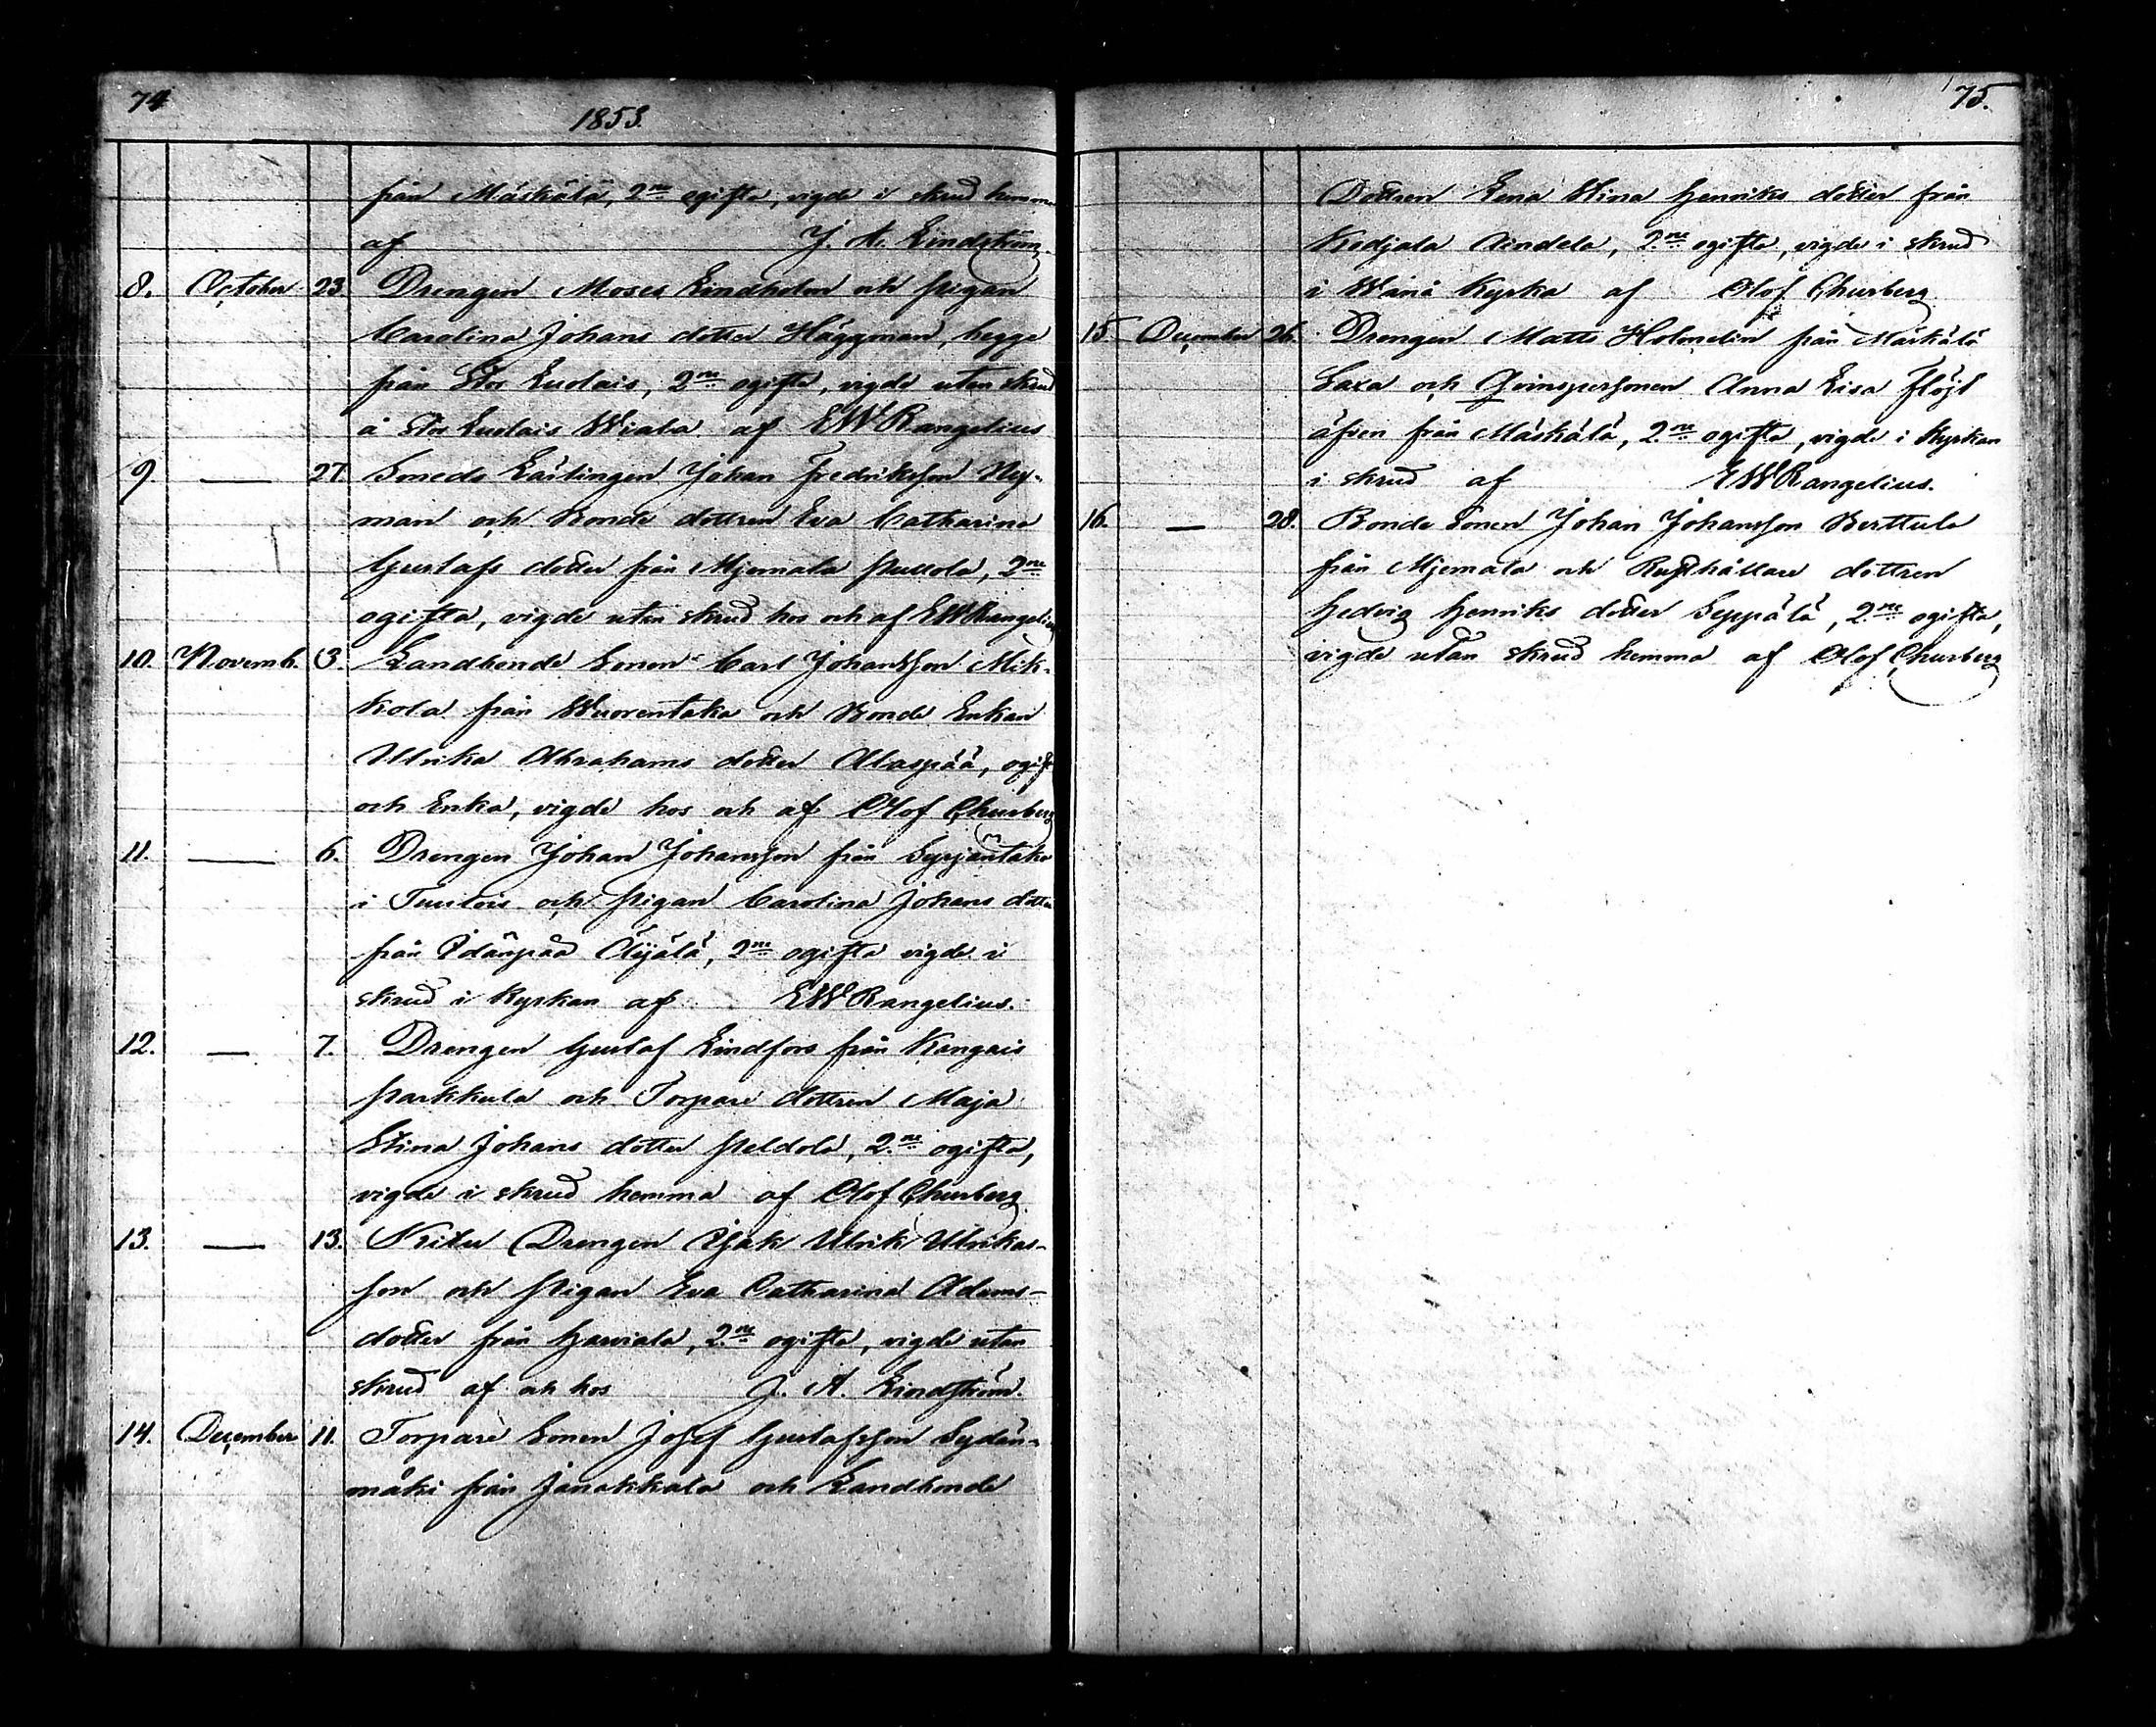 74
1853.
från Måskälä, 2ne ogifta, vigde i skrud hemma
af J. A. Lindström
8. October 23. Drengen Moses Lindholm och Pigan
Carolina Johans dotter Häggman, begge
från Stor Luolais, 2ne ogifte, vigde utan skrud
å Stor Luolais Wiala af EWRangelius
9. — 27. Smeds Lärlingen Johan Fredriksson Ny-
man och Bonde dottren Eva Catharina
Gustafs dotter från Mjemala Pullola, 2ne
ogifta, vigde utan skrud hos och af EWRangelius
10. Novemb. 3. Landbonde Sonen Carl Johansson Mik-
kola från Wuorentaka och Bonde Enkan
Ulrika Abrahams dotter Alaspää, ogift
och Enka, vigde hos och af Olof Churberg
11. — 6. Drengen Johan Johansson från Syrjäntaka
i Tuulois och Pigan Carolina Johans dotter
från Idänpää Äijälä, 2ne ogifta vigde i
skrud i Kyrkan af EWRangelius.
12. — 7. Drengen Gustaf Lindfors från Kangais
Parkkula och Torpare dottren Maja
Stina Johans dotter Peldola, 2ne ogifta,
vigde i skrud hemma af Olof Churberg
13. — 13. Drengen Isak Ulrik Ulrikas-
son och Pigan Eva Catharina Adams-
dotter från Harviala, 2ne ogifta, vigde utan
skrud af och hos J. A. Lindström.
14. December 11. Torpare Sonen Josef Gustafsson Sydän-
mäki från Janakkala och Landbonde
75.
Dottren Lena Stina Henriks dotter från
Kodjala Aindela, 2ne ogifta, vigde i skrud
i Wånå Kyrka af Olof Churberg
15. December 26. Drengen Matts Holmelin från Mäskälä
Laxa och Qvinspersonen Anna Lisa Flöjt
äfven från Mäskälä, 2ne ogifta, vigde i Kyrkan
i skrud af EWRangelius.
16. — 28. Bonde Sonen Johan Johansson Berttula
från Mjemala och Rusthållare dottren
Hedvig Henriks dotter Seppälä, 2ne ogifta,
vigde utan skrud hemma af Olof Churberg